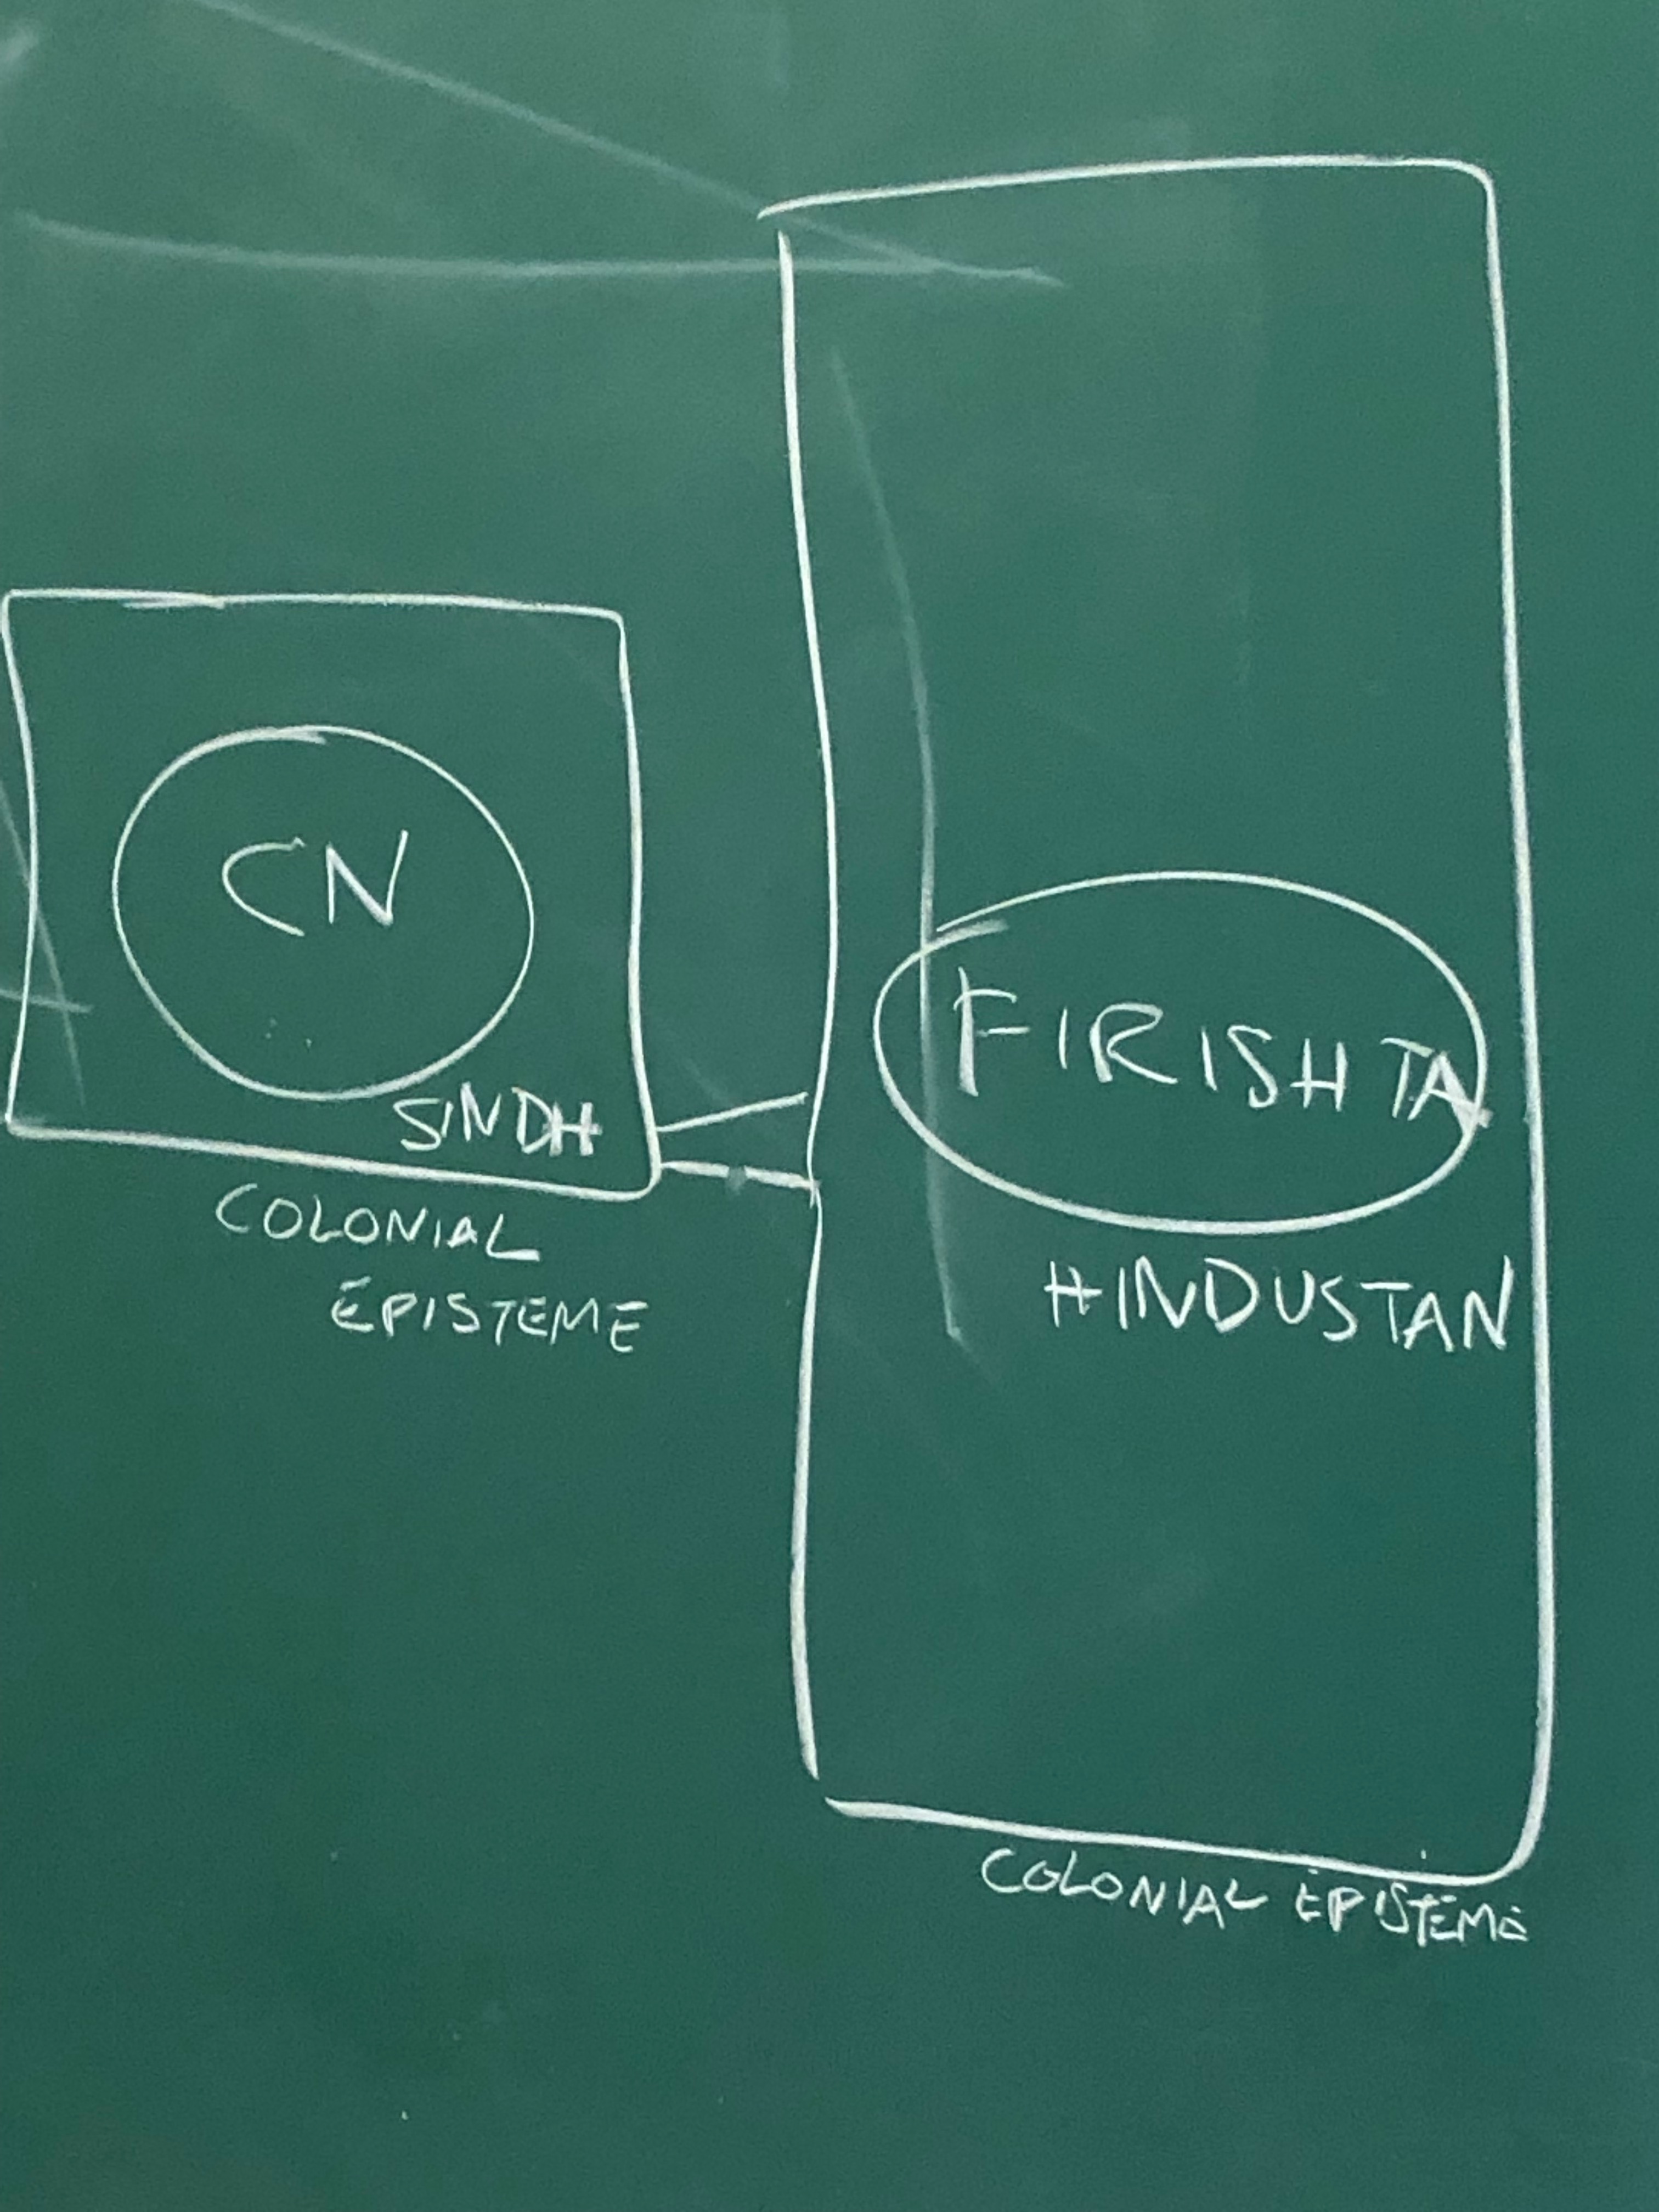 CN
SINDH
COLONIAL
EPISTEME
FIRISHTA
HINDUSTAN
COLONIAL EPISTEME